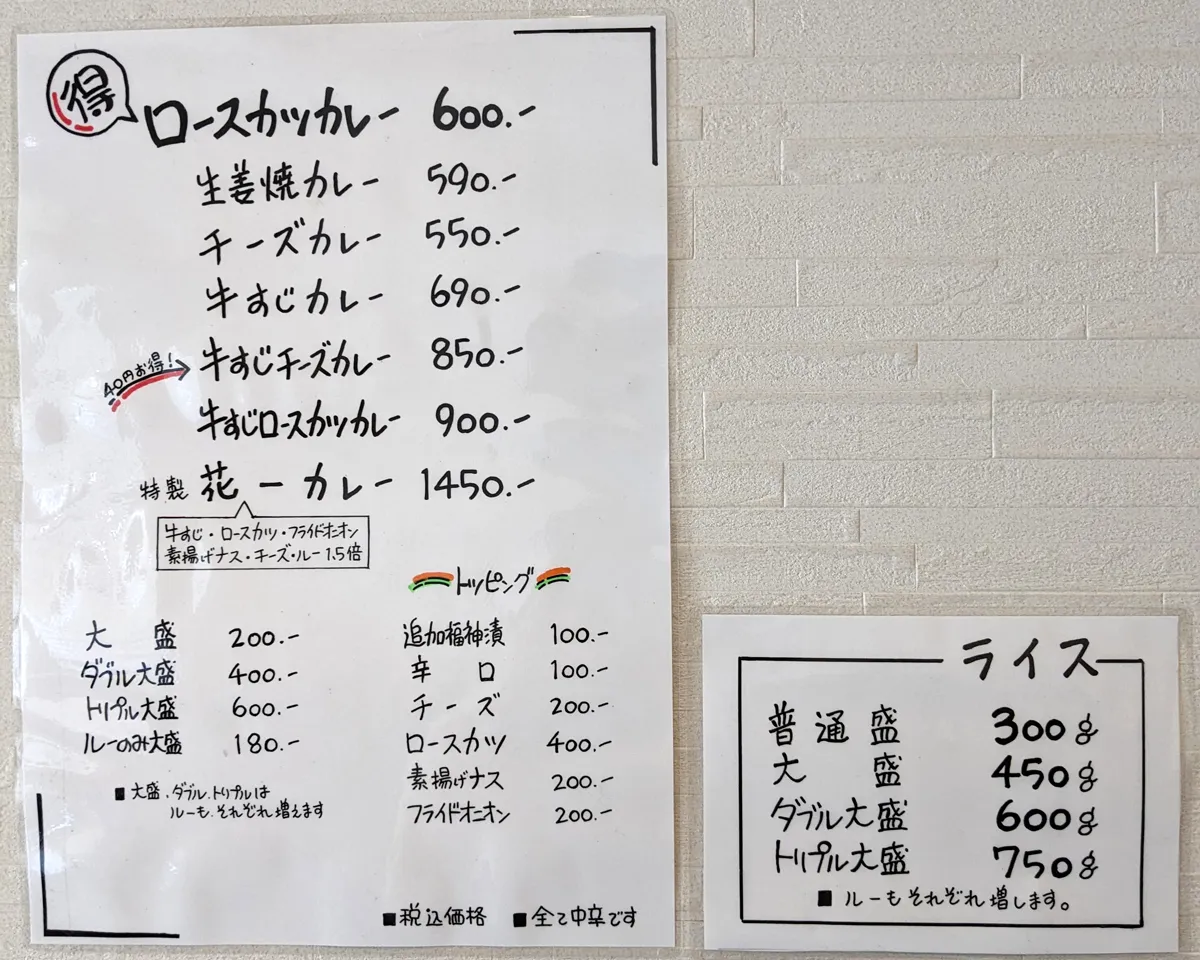 得
ロースカツカレー 600.-
生姜焼カレー 590.-
チーズカレー 550.-
牛すじカレー 690.-
40円お得!
牛すじチーズカレー 850.-
牛すじロースカツカレー 900.-
特製 花一カレー 1450.-
牛すじ・ロースカツ・フライドオニオン
素揚げナス・チーズ・ルー1.5倍
大盛 200.-
ダブル大盛 400.-
トリプル大盛 600.-
ルーのみ大盛 180.-
■大盛.ダブル.トリプルは
ルーも.それぞれ増えます
トッピング
追加福神漬 100.-
辛口 100.-
チーズ 200.-
ロースカツ 400.-
素揚げナス 200.-
フライドオニオン 200.-
■税込価格 ■全て中辛です
ライス
普通盛 300g
大盛 450g
ダブル大盛 600g
トリプル大盛 750g
■ルーもそれぞれ増します。